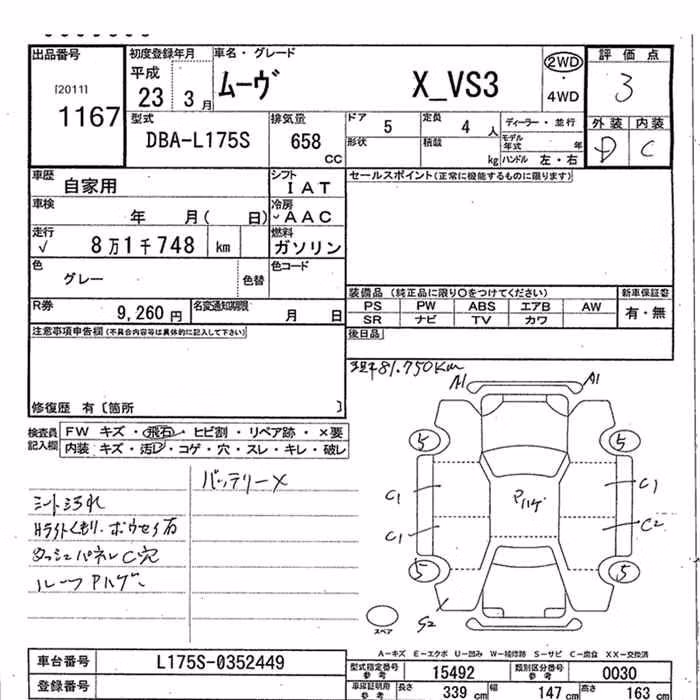 出品番号 初度登録年月 車名・グレード 評価点
[2011] 平成 ムーヴ X_VS3 2WD 3
1167 23 3月 4WD
型式 排気量 ドア 定員 ディーラー・並行 外装 内装
DBA-L175S 658 CC 5 4人 モデル年式 年 D C
形状 積載 kg ハンドル 左・右
車歴 自家用 シフト IAT セールスポイント(正常に機能するものに限ります)
車検 年 月( 日) 冷房 AAC
走行 √ 8万1千748 km 燃料 ガソリン
色 グレー 色替 色コード
装備品 (純正品に限り○をつけてください) 新車保証書
R券 9,260円 名変通知期限 月 日 PS PW ABS エアB AW 有・無
SR ナビ TV カワ
注意事項申告欄(不具合内容等は具体的に記入して下さい) 後日品
現キ81.750Km
修復歴 有〔箇所 〕
検査員記入欄 FW キズ・飛石・ヒビ割・リペア跡・×要
内装 キズ・汚レ・コゲ・穴・スレ・キレ・破レ
バッテリーX
シート汚れ
Hライトくもり、
ダッシュパネルC穴
ルーフPハゲ
A1 A1
5 5
C1 Pハゲ C1
C1 C2
5 5
スペア
A-キズ E-エクボ U-凹み W-補修跡 S-サビ C-腐食 XX-交換済
車台番号 L175S-0352449 型式指定番号 参考 15492 類別区分番号 参考 0030
登録番号 車庫証明用 参考 長さ 339 cm 幅 147 cm 高さ 163 cm